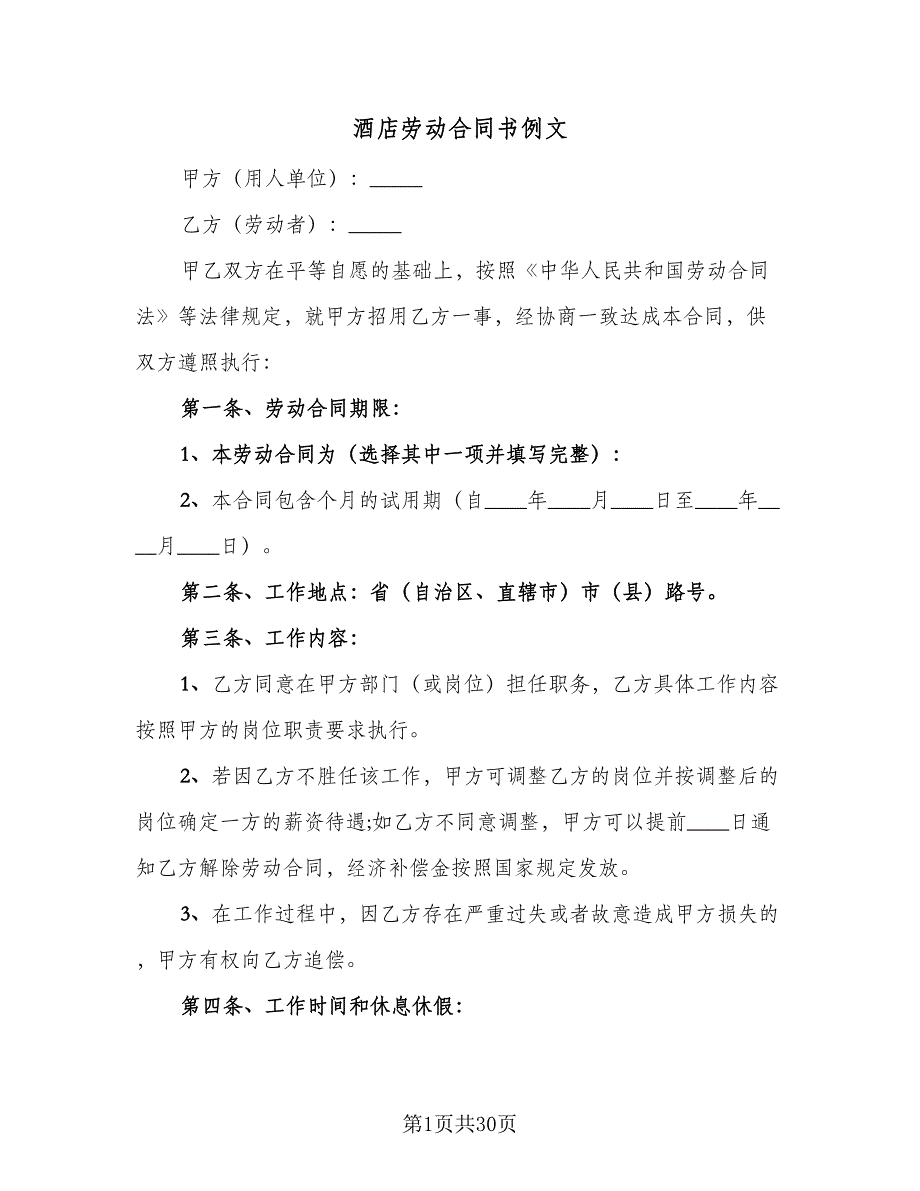 酒店劳动合同书例文
甲方（用人单位）：_____
乙方（劳动者）：_____
甲乙双方在平等自愿的基础上，按照《中华人民共和国劳动合同
法》等法律规定，就甲方招用乙方一事，经协商一致达成本合同，供
双方遵照执行：
第一条、劳动合同期限：
1、本劳动合同为（选择其中一项并填写完整）：
2、本合同包含个月的试用期（自____年____月____日至____年__
__月____日）。
第二条、工作地点：省（自治区、直辖市）市（县）路号。
第三条、工作内容：
1、乙方同意在甲方部门（或岗位）担任职务，乙方具体工作内容
按照甲方的岗位职责要求执行。
2、若因乙方不胜任该工作，甲方可调整乙方的岗位并按调整后的
岗位确定一方的薪资待遇;如乙方不同意调整，甲方可以提前____日通
知乙方解除劳动合同，经济补偿金按照国家规定发放。
3、在工作过程中，因乙方存在严重过失或者故意造成甲方损失的
，甲方有权向乙方追偿。
第四条、工作时间和休息休假：
第1页共30页